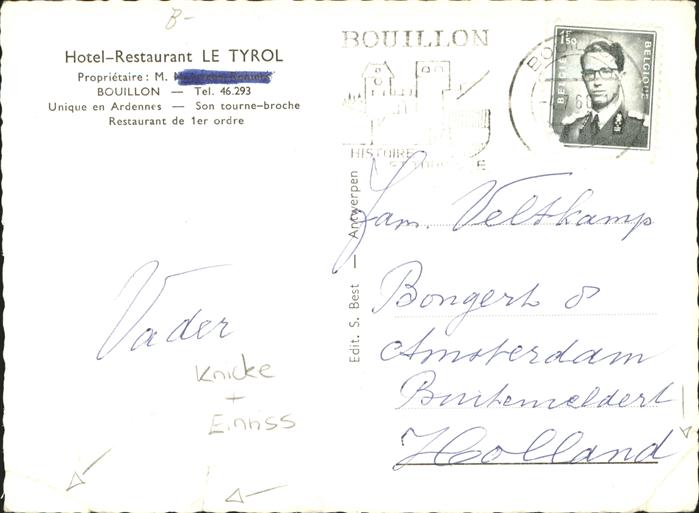 B-
Hotel-Restaurant LE TYROL
Propriétaire : M.
BOUILLON — Tel. 46.293
Unique en Ardennes — Son tourne-broche
Restaurant de 1er ordre
BOUILLON
HISTOIRE
1F50
BELGIE
BELGIQUE
Edit. S. Best — Antwerpen
Fam. Veltkamp
Bongert 8
Amsterdam
Buitenveldert
Holland
Vader
Knicke
+
Einriss